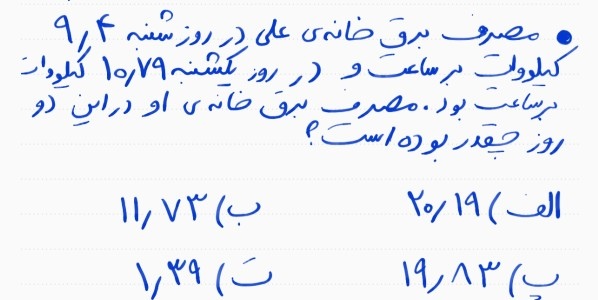 ● مصرف برق خانه‌ی علی در روز شنبه ۹٫۴
کیلووات بر ساعت و در روز یکشنبه ۱۰٫۷۹ کیلووات
بر ساعت بود. مصرف برق خانه‌ی او در این دو
روز چقدر بوده است؟
الف) ۲۰٫۱۹ ب) ۱۱٫۷۳
پ) ۱۹٫۸۳ ت) ۱٫۳۹